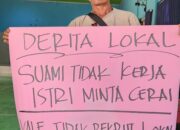 DERITA LOKAL
SUAMI TIDAK KERJA
ISTRI MINTA CERAI
TIDAK REKRUT LOKAL